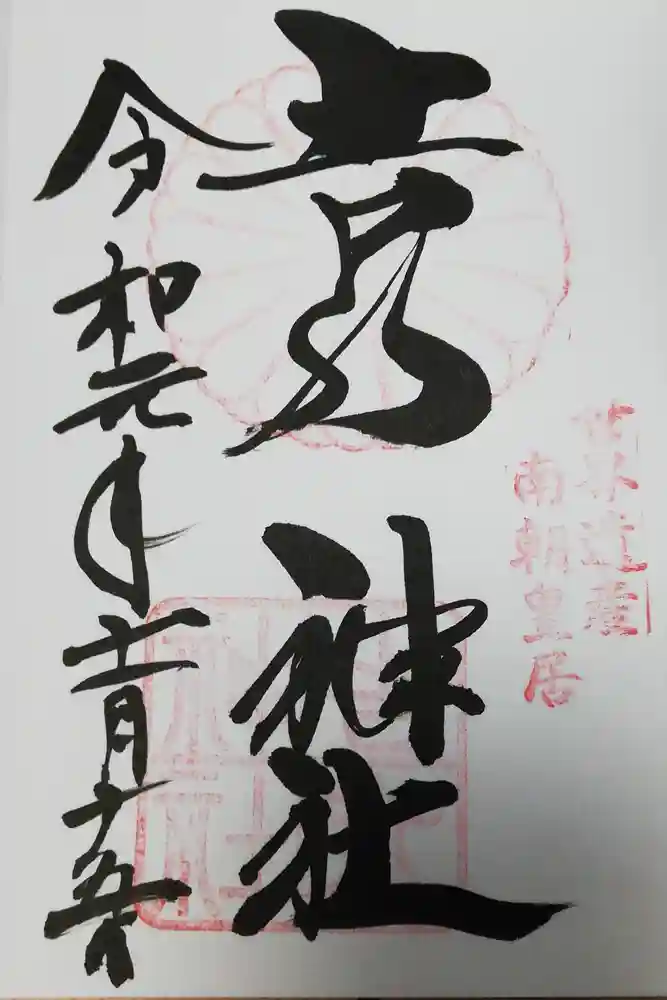 世界遺産
南朝皇居
吉水神社
令和元年十一月十五日